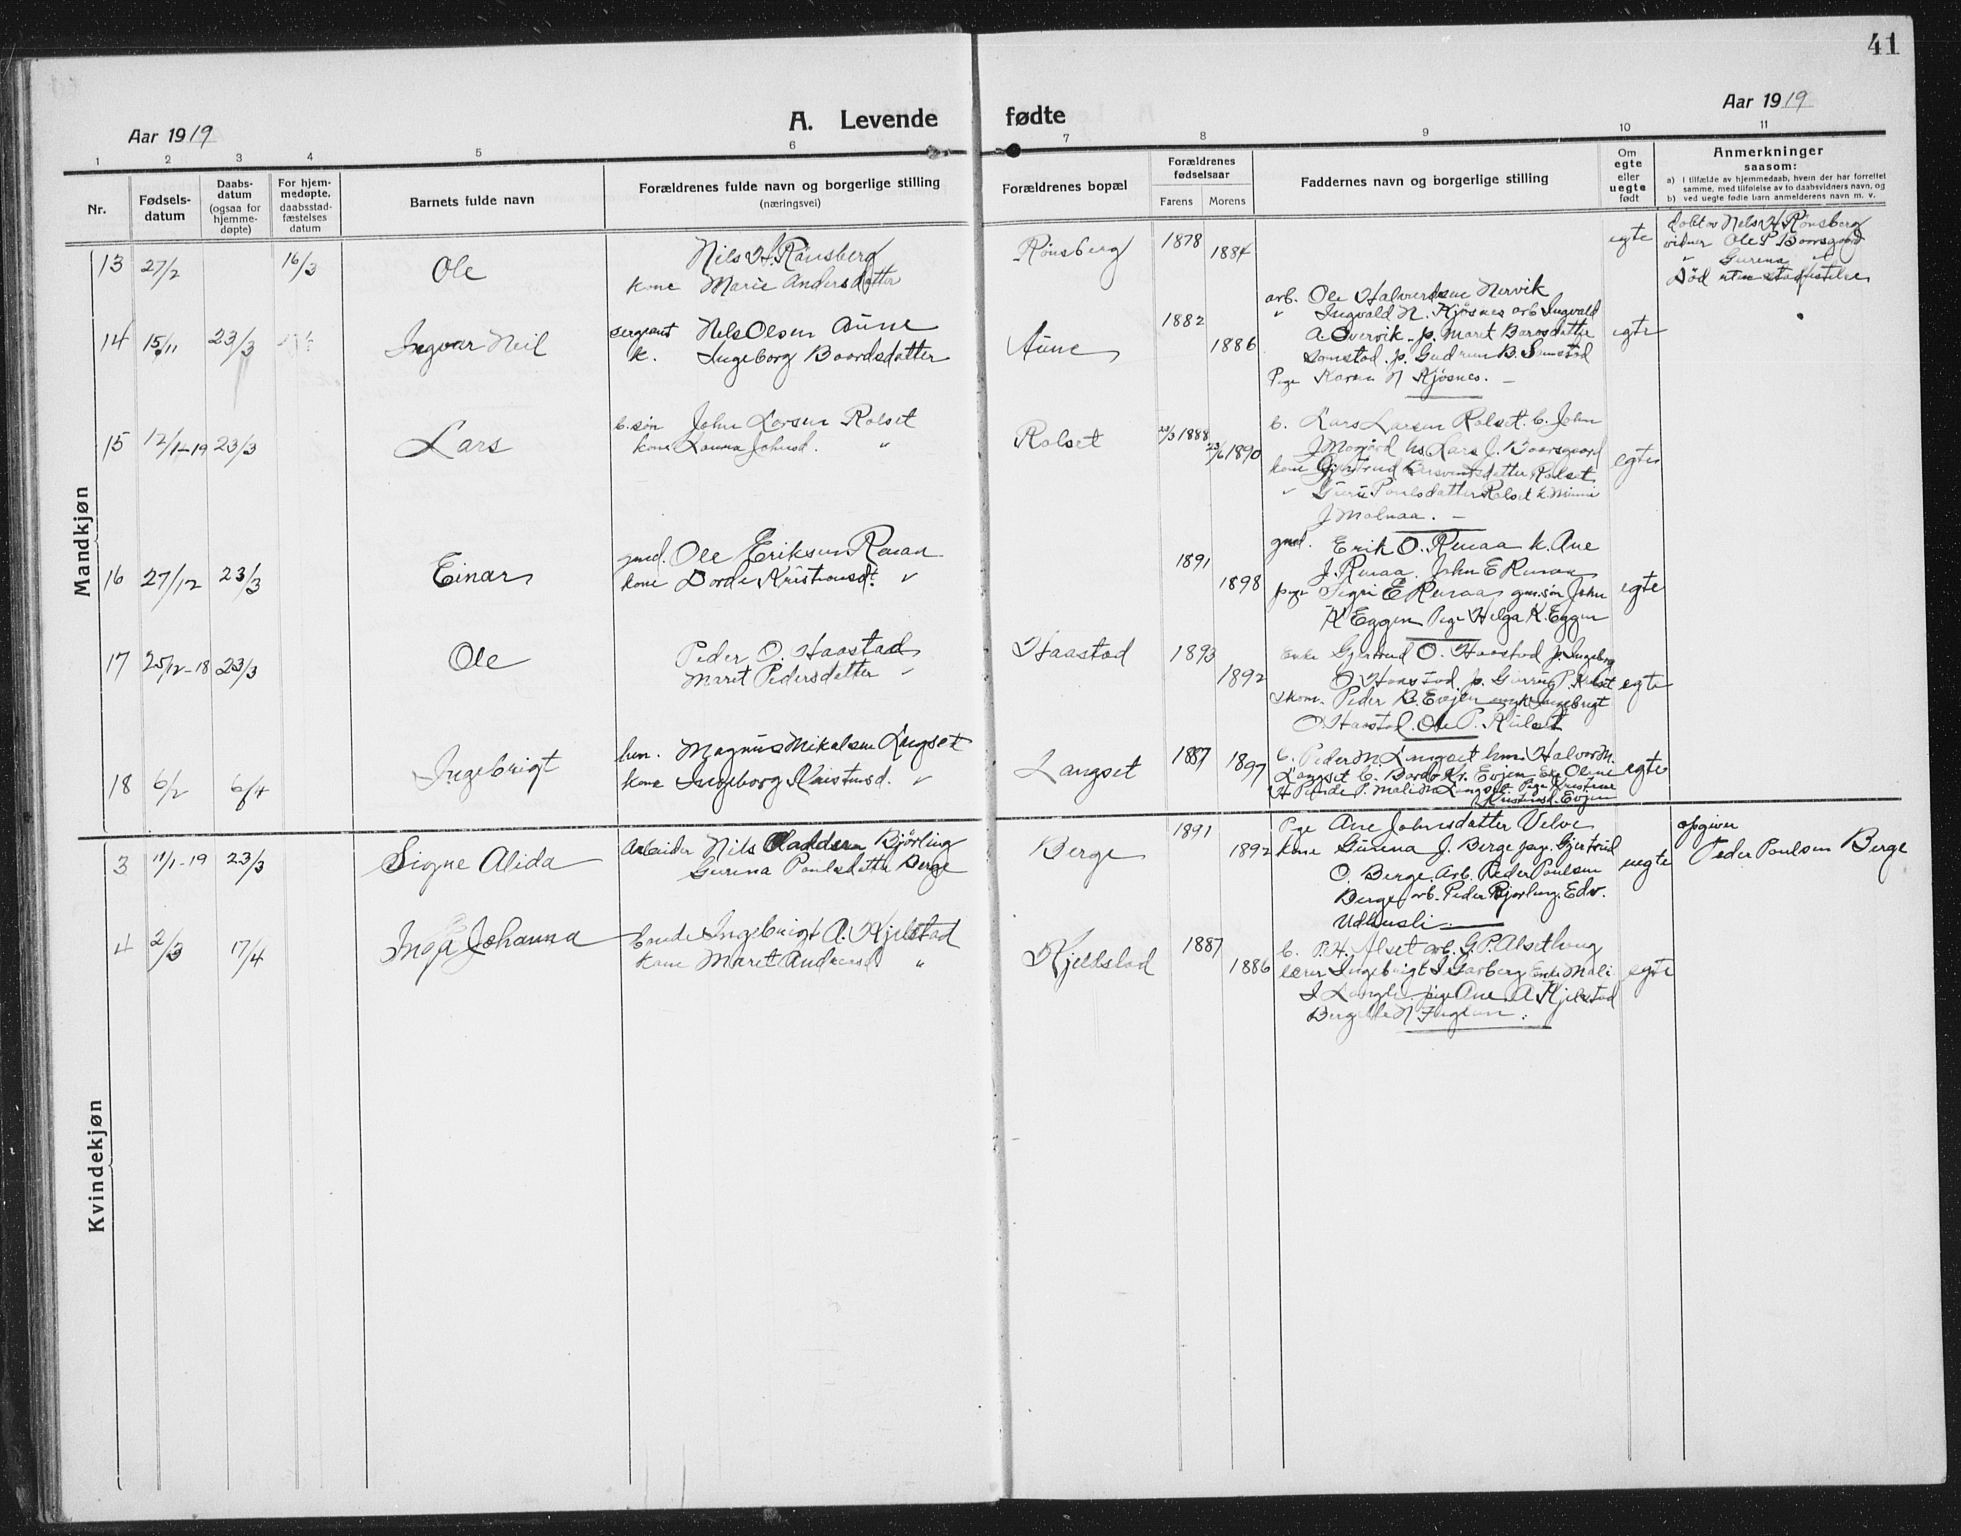 41
Aar 1919
A. Levende fødte
Aar 1919
1 2 3 4 5 6 7 8 9 10 11
Nr.
Fødsels-
datum
Daabs-
datum
(ogsaa for
hjemme-
døpte)
For hjem-
medøpte,
daabsstad-
fæstelses
datum
Barnets fulde navn
Forældrenes fulde navn og borgerlige stilling
(næringsvei)
Forældrenes bopæl
Forældrenes
fødselsaar
Farens Morens
Faddernes navn og borgerlige stilling
Om
egte
eller
uegte
født
Anmerkninger
saasom:
a) I tilfælde av hjemmedaab, hvem der har forrettet
samme, med tilføielse av to daabsvidners navn, og
b) ved uegte fødte barn anmelderens navn m. v.
Mandkjøn
13 27/2 16/3 Ole
Nils H. Rønsberg
kone Marie Andersdatter
Rønsberg 1878 1884
egte
Døbt av Nels H. Rønsberg
vidner Ole P Baarsgaard
" Gurena "
Død uten stadfestelse
14 15/11 23/3 Ingvar Neil
sergeant Nels Olsen Aune
k. Ingeborg Baardsdatter
Aune 1882 1886
arb. Ole Halvordsen Nervik
" Ingvald N. Kjøsnes arb Ingvald
A Overvik p. Maret Baarsdatter
Samstad. p. Gudrun B. Samstad
Pige Karen N Kjøsnes. —
egte
15 12/1-19 23/3 Lars
b. søn John Larsen Rolset
kone Johnsd. "
Rolset 20/3 1888 23/6 1890
b. Lars Larsen Rolset. b. John
J Mogård hs Lars J. Baarsgaard
kone Gjertrud Rolset
" Guri Paulsdatter Rolset k.
J Malnaa. —
egte
16 27/12 23/3 Einar
gmd. Ole Eriksen Renaa
kone Dorde Kristiansd. "
1891 1898
gmd. Erik O. Renaa k. Ane
J. Renaa. John E Renaa
pige E Renaa gm.søn John
K Eggen Pige Helga K. Eggen
egte
17 25/12-18 23/3 Ole
Peder O. Haastad
Marit Pedersdatter "
Haastad 1893 1892
Enke Gjertrud O. Haastad p. Ingeborg
O Haastad p. P.
skom. Peder B. Evjen Ingebrigt
O Haastad. Ole P.
egte
18 6/2 6/4 Ingebrigt
hm. Magnus Mikalsen Langset
kone Ingeborg Kristensd. "
Langset 1887 1897
b. Peder M Langset hm. Halvor M.
Langset b. Bardo Kr. Evjen Oline
H P. Mali M Langset Pige Kristine
Kristensd. Evjen
egte
Kvindekjøn
3 11/1-19 23/3 Signe Alida
Arbeider Nils Bjørling
Gurena Paulsdatter Berge
Berge 1891 1892
Pige Ane Johnsdatter Velve
kone Gurena J. Berge pige. Gjertrud
O. Berge. Arb. Peder Paulsen
Berge arb. Peder Bjørling. Edv.
Udhusli —
uegte
opgiver
Peder Paulsen Berge
4 2/3 17/4 Inga Johanna
bonde Ingebrigt A. Kjelstad
kone Maret Andersd "
Kjeldstad 1887 1886
b. P. H. Alset arb. G. P. Alsethaug
lærer Ingebrigt I Garberg Enke Mali
I Langli pige Ane A Kjelstad
Berg Ole N Fuglem.
egte